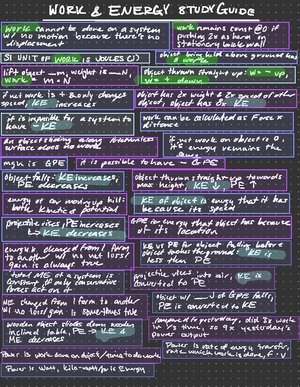 WORK & ENERGY STUDY GUIDE
work cannot be done on a system
w/ no motion because there's no
displacement
work remains const @ 0 if
pushing 2x as hard on
stationary brick wall
SI UNIT OF WORK is JOULES (J)
object being held above ground has
0 work
lift object __m, weight is __N,
work = m • N
object thrown straight up: W = - up,
W = + down
if net work is + & only changes
speed, KE increases
object has 2x weight & 2x speed of other
object, object has 8x KE
it is impossible for a system to
have -KE
work can be calculated as Force x
distance
an object sliding across frictionless
surface does no work
if net work on object is 0,
it's energy remains the
same
mgh is GPE
it is possible to have - GPE
object falls: KE increases,
PE decreases
object thrown straight up towards
max height: KE ↓, PE ↑
energy of car moving up hill:
both kinetic & potential
KE of object is energy that it has
because of its speed
projectile rises, PE increases
KE decreases
GPE is energy that object has because
of its location
energy is changed from 1 form
to another w/ no net loss/
gain is always true
KE vs PE for object falling before
object touches the ground: KE is
less than PE
total ME of a system is
constant, if only conservative
forces act on it
projectile rises, into air, KE is
converted to PE
ME changed from 1 form to another
w/ no loss/gain is sometimes true
object w/ __ J of GPE falls,
PE is converted to KE
wooden object slides down wooden
inclined table, PE → KE &
ME decreases
compared to yesterday, did 3x work
in 1/3 time, so 9x yesterday's
power output
Power is work done on object/time to do work
Power is rate of energy transfer,
rate which work is done, F • v
Power is Watt, kilo-watt/hr is Energy